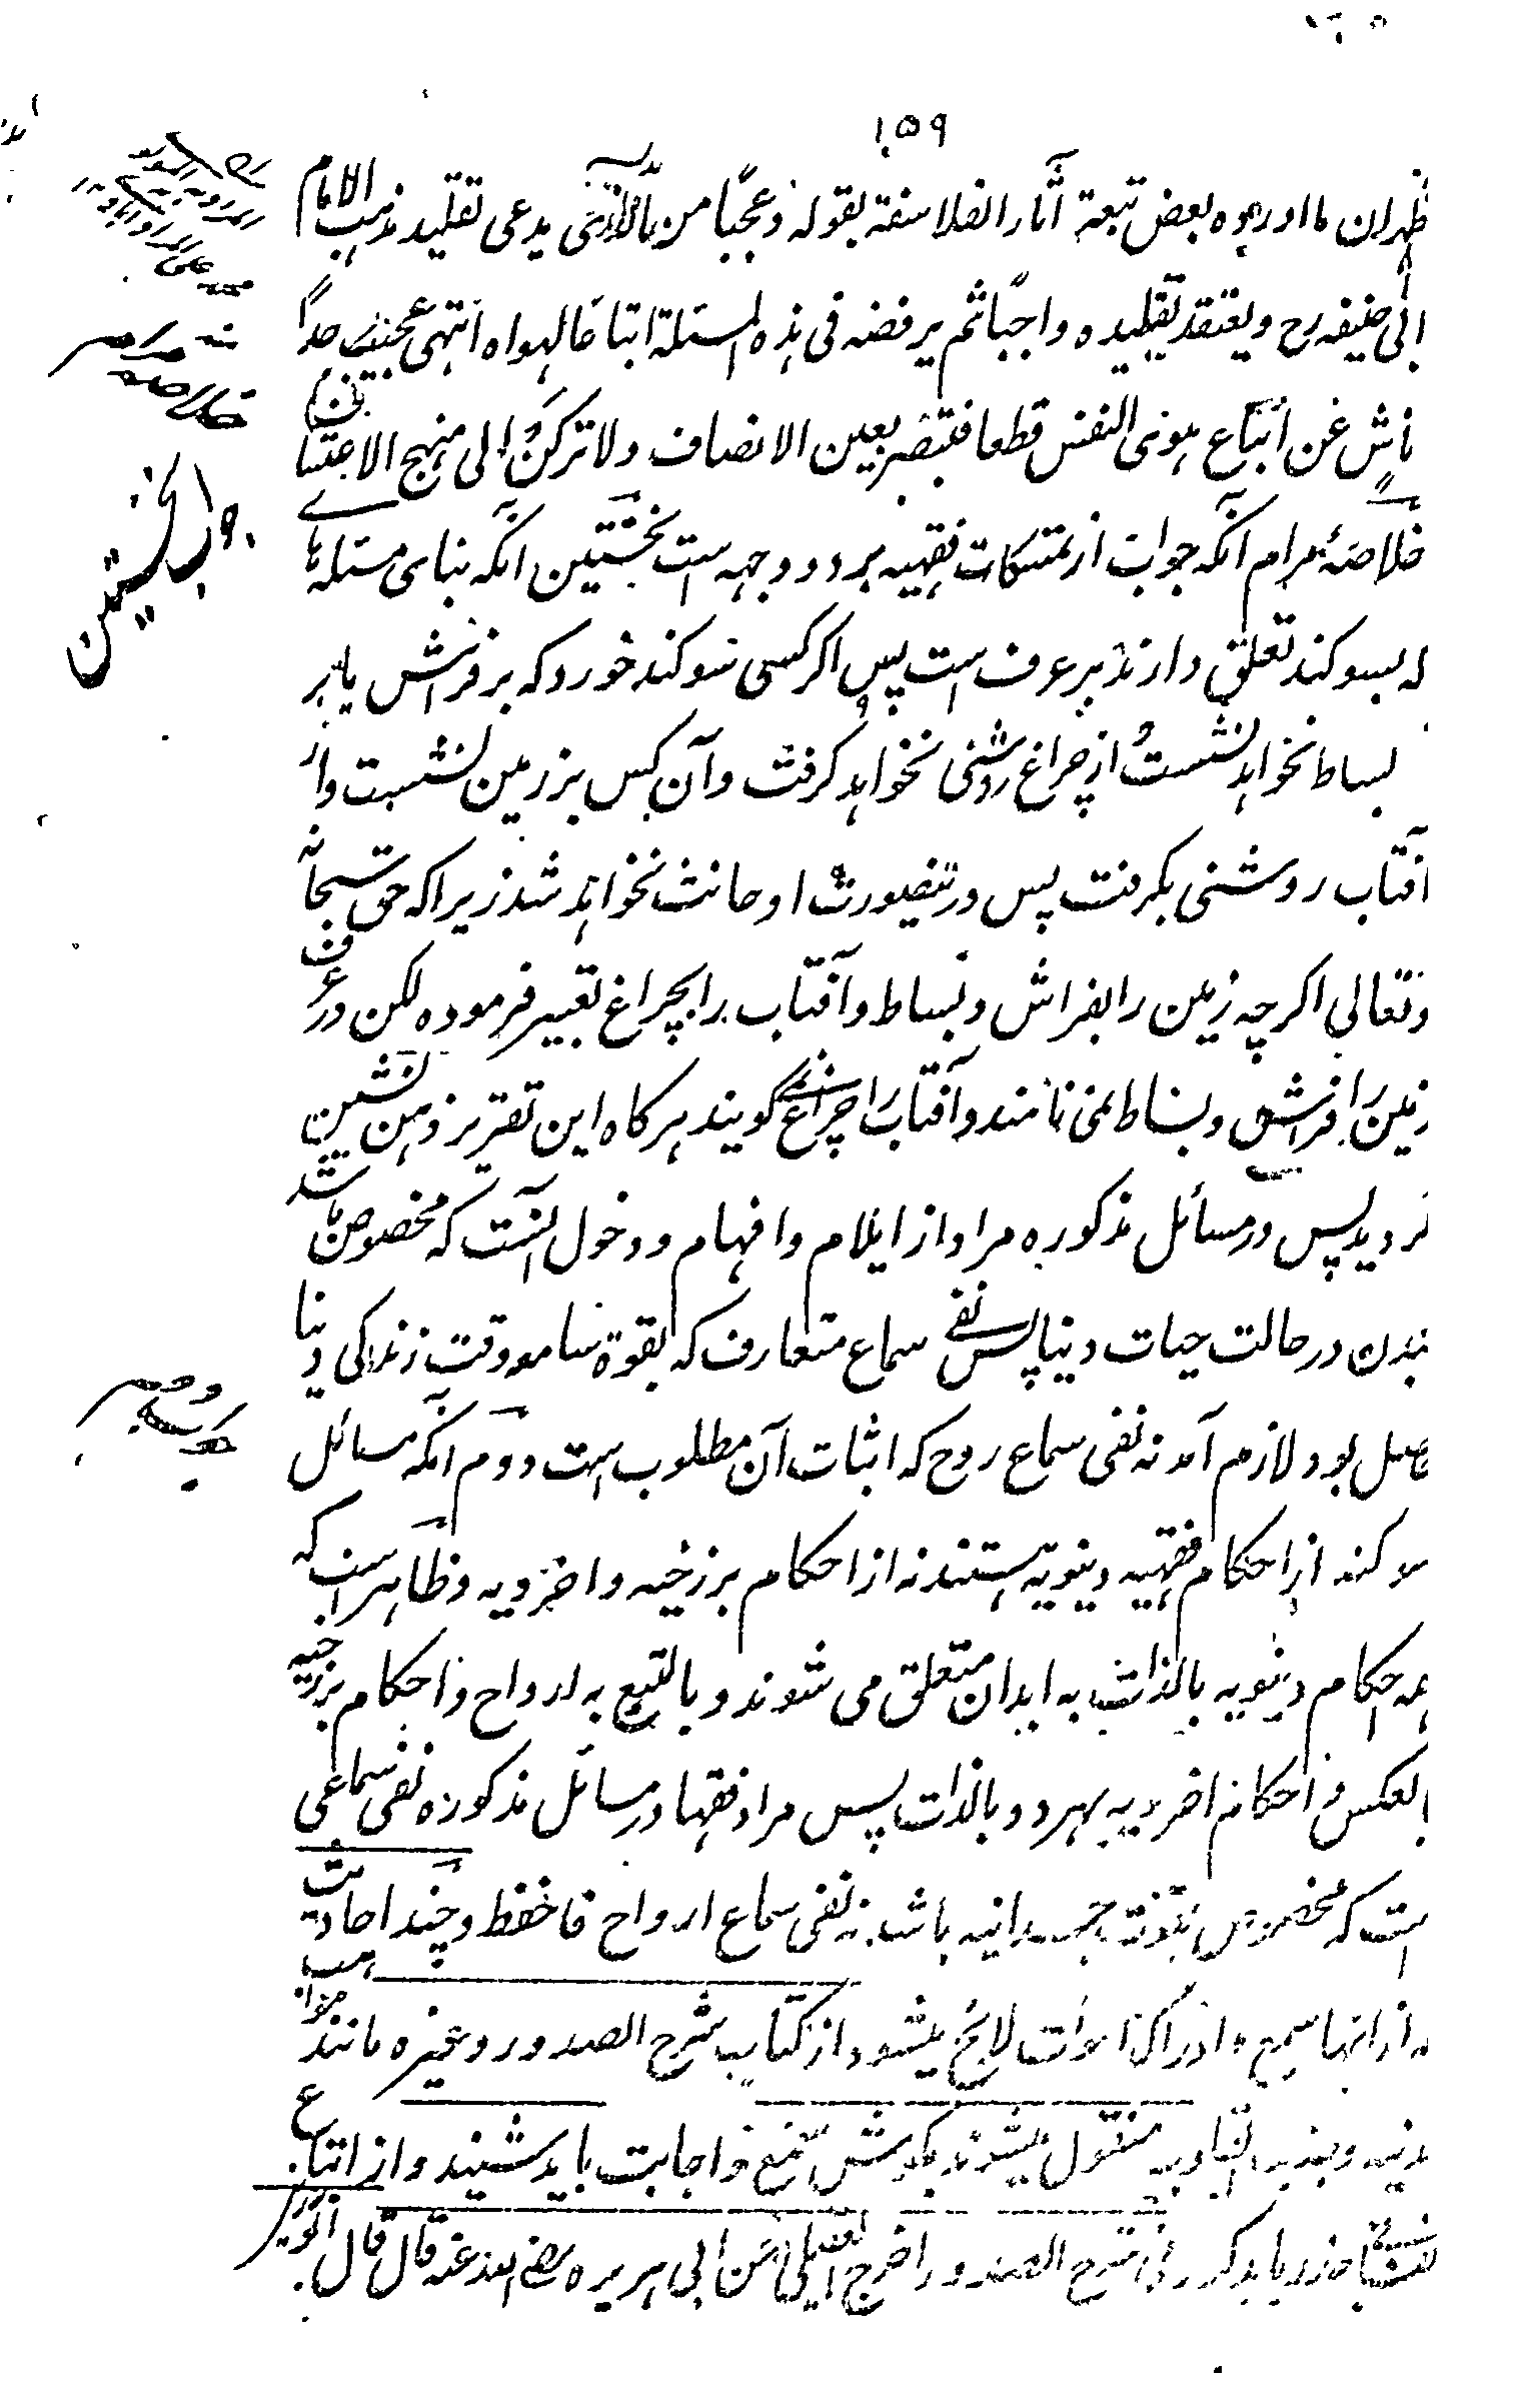 ۱۵۹
ظهر ان ما اورده بعض تبعة آثار الفلاسفة بقوله و عجبًا من یدعی تقلید مذهب الامام
ابی حنیفه رح و یعتقد تقلیده واجبًا ثم یرفضه فی هذه المسئلة اتباعًا لهواه انتهی عجیب جدًا
ناش عن اتباع هوی النفس قطعا فتبصر بعین الانصاف ولا ترکن الی منهج الاعتساف
خلاصهٔ مرام آنکه جواب از تمسکات فقهیه بر دو وجه است نخستین آنکه بنای مسئله های
که بسوکند تعلق دارند بر عرف است پس اکر کسی سوکند خورد که بر فراش یا بر
بساط نخواهد نشست و از چراغ روشنی نخواهد کرفت و آن کس بر زمین نشست و از
آفتاب روشنی بکرفت پس درینصورت او حانث نخواهد شد زیرا که حق سبحانه
و تعالی اکرچه زمین را بفراش و بساط و آفتاب را بچراغ تعبیر فرموده لکن در عرف
زمین را فراش و بساط نمی نامند و آفتاب را چراغ نمی کویند هر کاه این تقریر ذهن نشین
کردید پس در مسائل مذکوره مراد از ایلام و افهام و دخول آنست که مخصوص باشد
ببدن در حالت حیات دنیا پس نفی سماع متعارف که بقوة سامعه وقت زندکی دنیا
حاصل بود لازم آمد نه نفی سماع روح که اثبات آن مطلوب است دوم آنکه مسائل
سوکند از احکام فقهیه دنیویه هستند نه از احکام برزخیه و اخرویه و ظاهر است که
همه احکام دنیویه بالذات به ابدان متعلق می شوند و بالتبع به ارواح و احکام برزخیه
بالعکس و احکام اخرویه بهر دو بالذات پس مراد فقها در مسائل مذکوره نفی سماعی
است که مخصوص بقوت جسدانیه باشد نه نفی سماع ارواح فاحفظ و چند احادیث
که از انها سمع و ادراک اموات لائح میشود از کتاب شرح الصدور و غیره مانند مواهب
لدنیه و منقول میشوند بکوش سمع و اجابت باید شنید و از اتباع
باید کرد فی شرح الصدور اخرج العقیلی عن ابی هریره رضی الله عنه قال قال ابو رزین
جواب نخستین